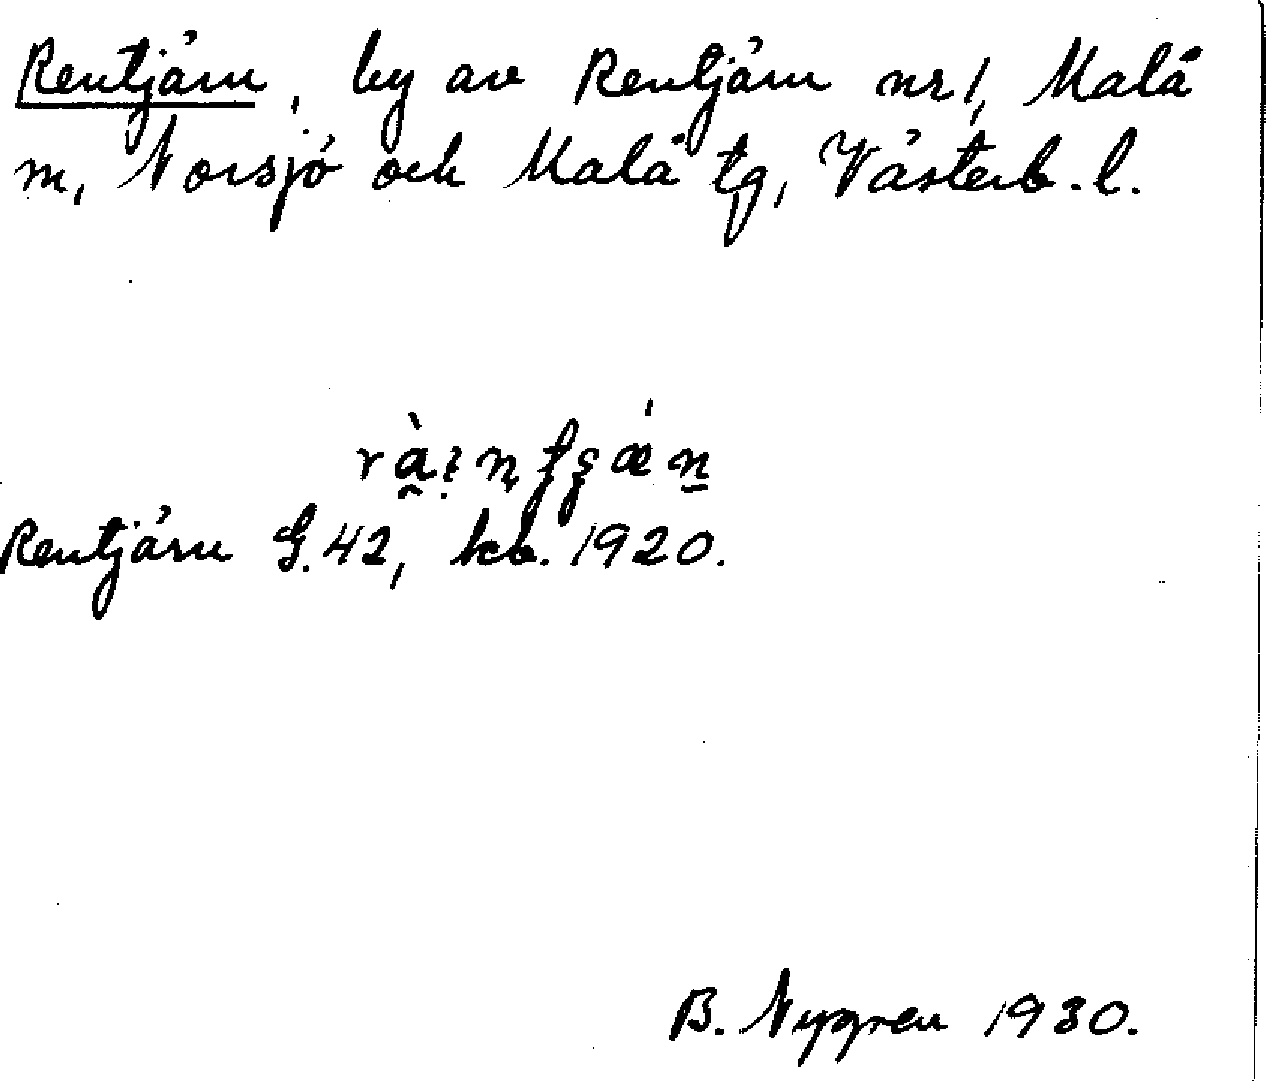 Rentjärn, by av Rentjärn nr 1, Malå
m, Norsjö och Malå tg, Västerb. l.
Rentjärn G. 42, kb. 1920.
B. Nygren 1930.